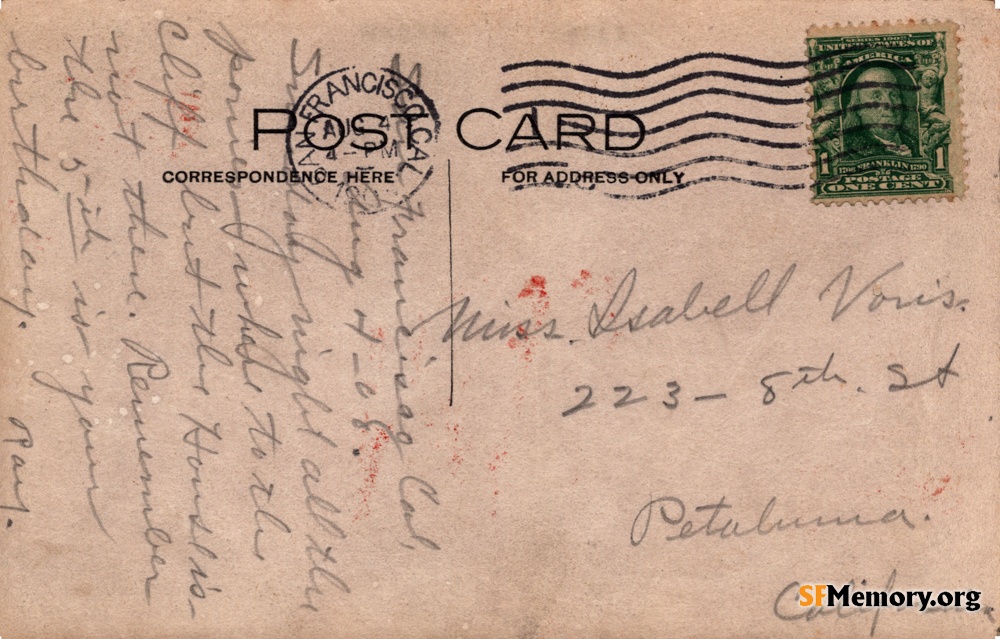 POST CARD
CORRESPONDENCE HERE
FOR ADDRESS ONLY
SAN FRANCISCO, CAL.
AUG 4
4-PM
SERIES 1902
UNITED STATES OF
AMERICA
1706 FRANKLIN 1790
POSTAGE
1 ONE CENT 1
San Francisco Cal,
Aug 4-08.
Sunday night all the
went to the
Cliff but the House is
not there. Remember
the 5th is your
birthday.
Ray.
Miss. Isabell Voris.
223 - 8th. St
Petaluma.
California
SFMemory.org